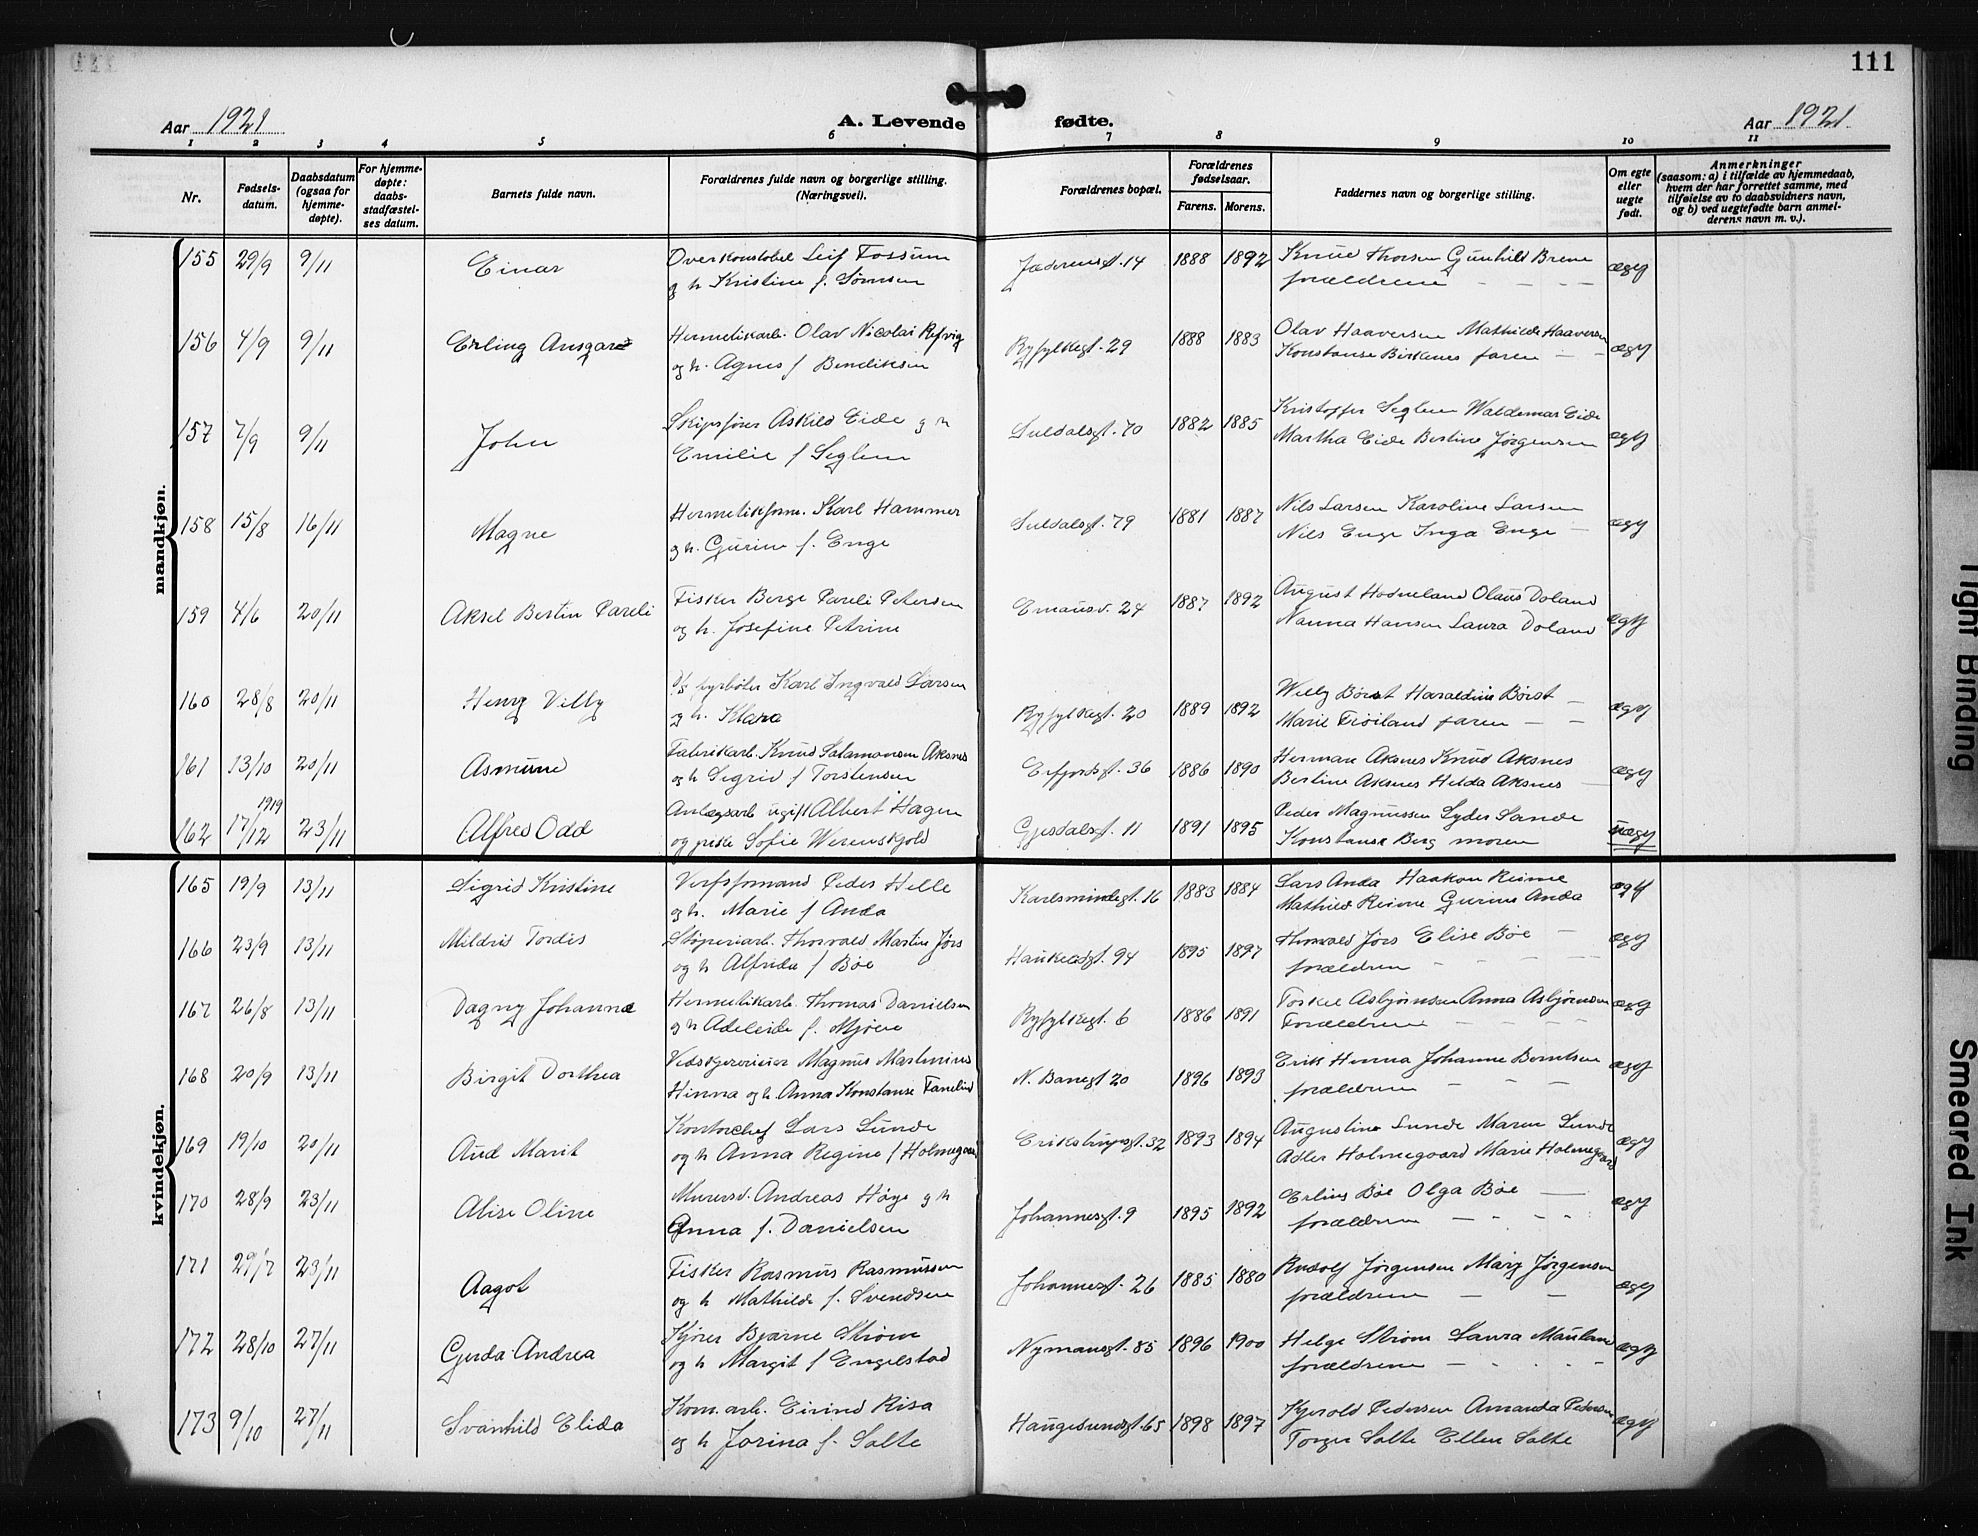 111
Aar 1921
A. Levende fødte.
Aar 1921
1 2 3 4 5 6 7 8 9 10 11
Nr.
Fødsels-
datum.
Daabsdatum
(ogsaa for
hjemme-
døpte).
For hjemme-
døpte:
daabs-
stadfæstel-
ses datum.
Barnets fulde navn.
Forældrenes fulde navn og borgerlige stilling.
(Næringsvei).
Forældrenes bopæl.
Forældrenes
fødselsaar.
Farens. Morens.
Faddernes navn og borgerlige stilling.
Om egte
eller
uegte
født.
Anmerkninger
(saasom: a) i tilfælde av hjemmedaab,
hvem der har forrettet samme, med
tilføielse av to daabsvidners navn,
og b) ved uegtefødte barn anmel-
derens navn m. v.).
mandkjøn.
155 29/9 9/11 Einar
Overkonstabel Leif Fossum
og h Kristine f. Sørnsen
Jæderensgt. 14 1888 1892
Knud Thorsen Gunhild Brene
forældrene
ægt
156 4/9 9/11 Erling Ansgar
Hermetikarb. Olav Nicolai Refvig
og h. Agnes f Bendiksen
Ryfylkegt. 29 1888 1883
Olav Haaversen Mathilde Haaversen
Konstanse Birkenes faren
ægt
157 7/9 9/11 John
Skipsfører Askild Eide og h
Emilie f Seglem
Suldalsgt. 70 1882 1885
Kristoffer Seglem Waldemar Eide
Martha Eide Bertine Jørgensen
ægt
158 15/8 16/11 Magne
Hermetikform. Karl Hammer
og h. Gurine f. Enge
Suldalsgt. 79 1881 1887
Nils Larsen Karoline Larsen
Nils Enge Inga Enge
ægt
159 4/6 20/11 Aksel Bertin Pareli
Fisker Berge Pareli Petersen
og h. Josefine Petrine
Emausv. 24 1887 1892
August Hodneland Olaus Doland
Nanna Hansen Laura Doland
ægt
160 28/8 20/11 Henry Villy
D/S fyrbøter Karl Ingvald Larsen
og h. Klara
Ryfylkegt. 20 1889 1892
Willy Børst Haraldine Børst
Marie Frøiland faren
ægt
161 13/10 20/11 Asmund
Fabrikarb. Knud Salamonsen Aksnes
og h Sigrid f Torstensen
Erfjordsgt. 36 1886 1890
Herman Aksnes Knud Aksnes
Bertine Aksnes Helda Aksnes
ægt
162 17/12 1919 23/11 Alfred Odd
Anlægsarb ugift Albert Hagen
og pike Sofie Werenskjold
Gjesdalsgt. 11 1891 1895
Peder Magnussen Lyder Sande
Konstanse Berg moren
uægt
kvindekjøn.
165 19/9 13/11 Sigrid Kristine
Verfsformand Peder Helle
og h. Marie f Anda
Karlsmindegt. 16 1883 1884
Lars Anda Haakon Reime
Mathild Reime Gurine Anda
ægt
166 23/9 13/11 Mildrid Tordis
Støperiarb. Thorvald Martin Jørs
og h Alfrida f Bøe
Haukeligt. 94 1895 1897
Thorvald Jørs Elise Bøe
forældrene
ægt
167 26/8 13/11 Dagny Johanna
Hermetikarb. Thomas Danielsen
og h Adeleide f. Mjøen
Ryfylkegt. 6 1886 1891
Torkel Asbjørnsen Anna Asbjørnsen
Forældrene
ægt
168 20/9 13/11 Birgit Dorthea
Magnus Martinius
Hinna og h. Anna Konstanse Fanelind
N. Banegt 20 1896 1893
Erik Hinna Johanne Berntsen
forældrene
ægt
169 19/10 20/11 Aud Marit
Kontorchef Lars Lunde
og h Anna Regine f Holmegaard
Erikstrupsgt. 32 1893 1894
Augustine Lunde Maren Lunde
Adler Holmegaard Marie Holmegaard
ægt
170 28/9 23/11 Alise Oline
Murersv. Andreas Høye og h
Anna f. Danielsen
Johannesgt. 9 1895 1892
Erling Bøe Olga Bøe
forældrene
ægt
171 29/7 23/11 Aagot
Fisker Rasmus Rasmussen
og h Mathilde f. Svendsen
Johannesgt. 26 1885 1880
Rudolf Jørgensen Mary Jørgensen
forældrene
ægt
172 28/10 27/11 Gerda Andrea
Kjører Bjarne Strøm
og h Margit f Engelstad
Nymansgt. 85 1896 1900
Helge Strøm Laura Mauland
forældrene
ægt
173 9/10 27/11 Svanhild Elida
Kom. arb. Eivind Risa
og h Jorina f. Salte
Haugesundsgt. 65 1898 1897
Kjerold Pedersen Amanda Pedersen
Torger Salte Ellen Salte
ægt
Tight Binding
Smeared Ink